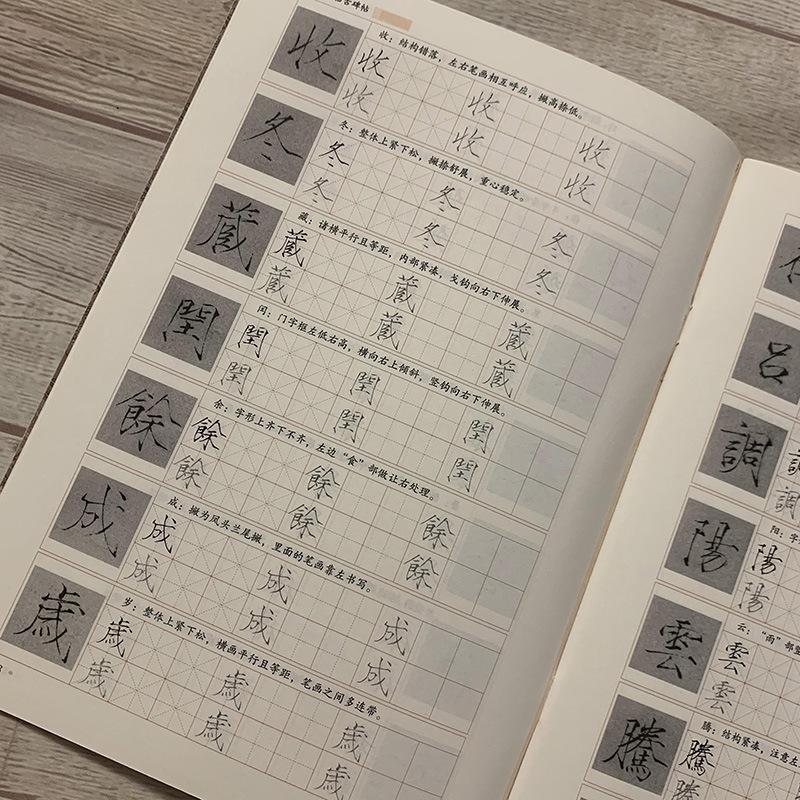 碑帖
收
收：结构错落，左右笔画相互呼应，撇高捺低。
收 收 收
收 收 收
冬
冬：整体上紧下松，撇捺舒展，重心稳定。
冬 冬 冬
冬 冬 冬
蔵
藏：诸横平行且等距，内部紧凑，戈钩向右下伸展。
蔵 蔵 蔵
蔵 蔵 蔵
閏
闰：门字框左低右高，横向右上倾斜，竖钩向右下伸展。
閏 閏 閏
閏 閏 閏
餘
余：字形上齐下不齐，左边“食”部做让右处理。
餘 餘 餘
餘 餘 餘
成
成：撇为凤头兰尾撇，里面的笔画靠左书写。
成 成 成
成 成 成
歳
岁：整体上紧下松，横画平行且等距，笔画之间多连带。
歳 歳 歳
歳 歳 歳
吕
調
調
調
陽
阳：字
陽
陽
雲
云：“雨”部
雲
雲
騰
腾：结构紧凑，注意左
騰
騰